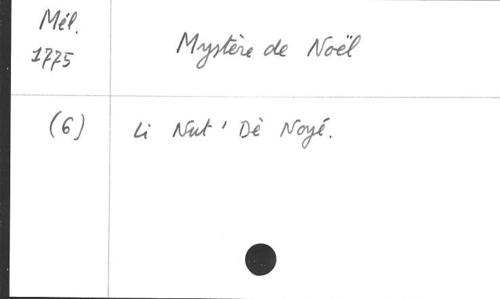 Mél.
1775
Mystère de Noël
(6)
Li Nut' Dè Noyé.